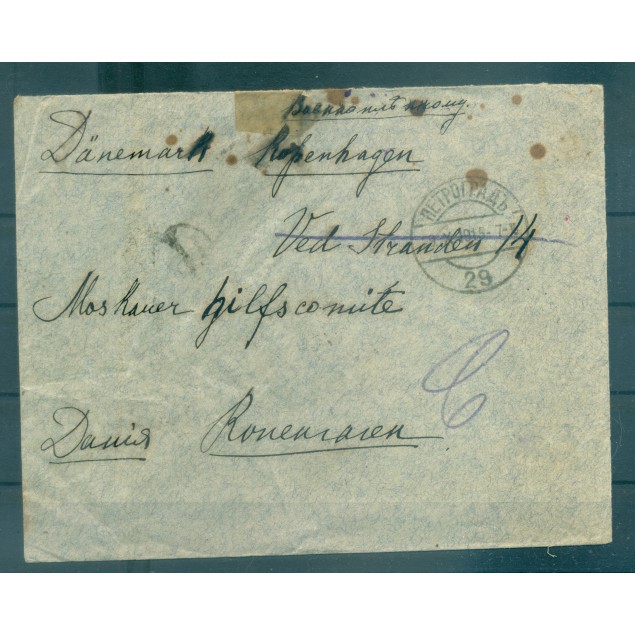 Военноплѣнному.
Dänemark Kopenhagen
Ved Stranden 14
ПЕТРОГРАДЪ
29
Moskauer Hilfscomite
Данія Копенгаген